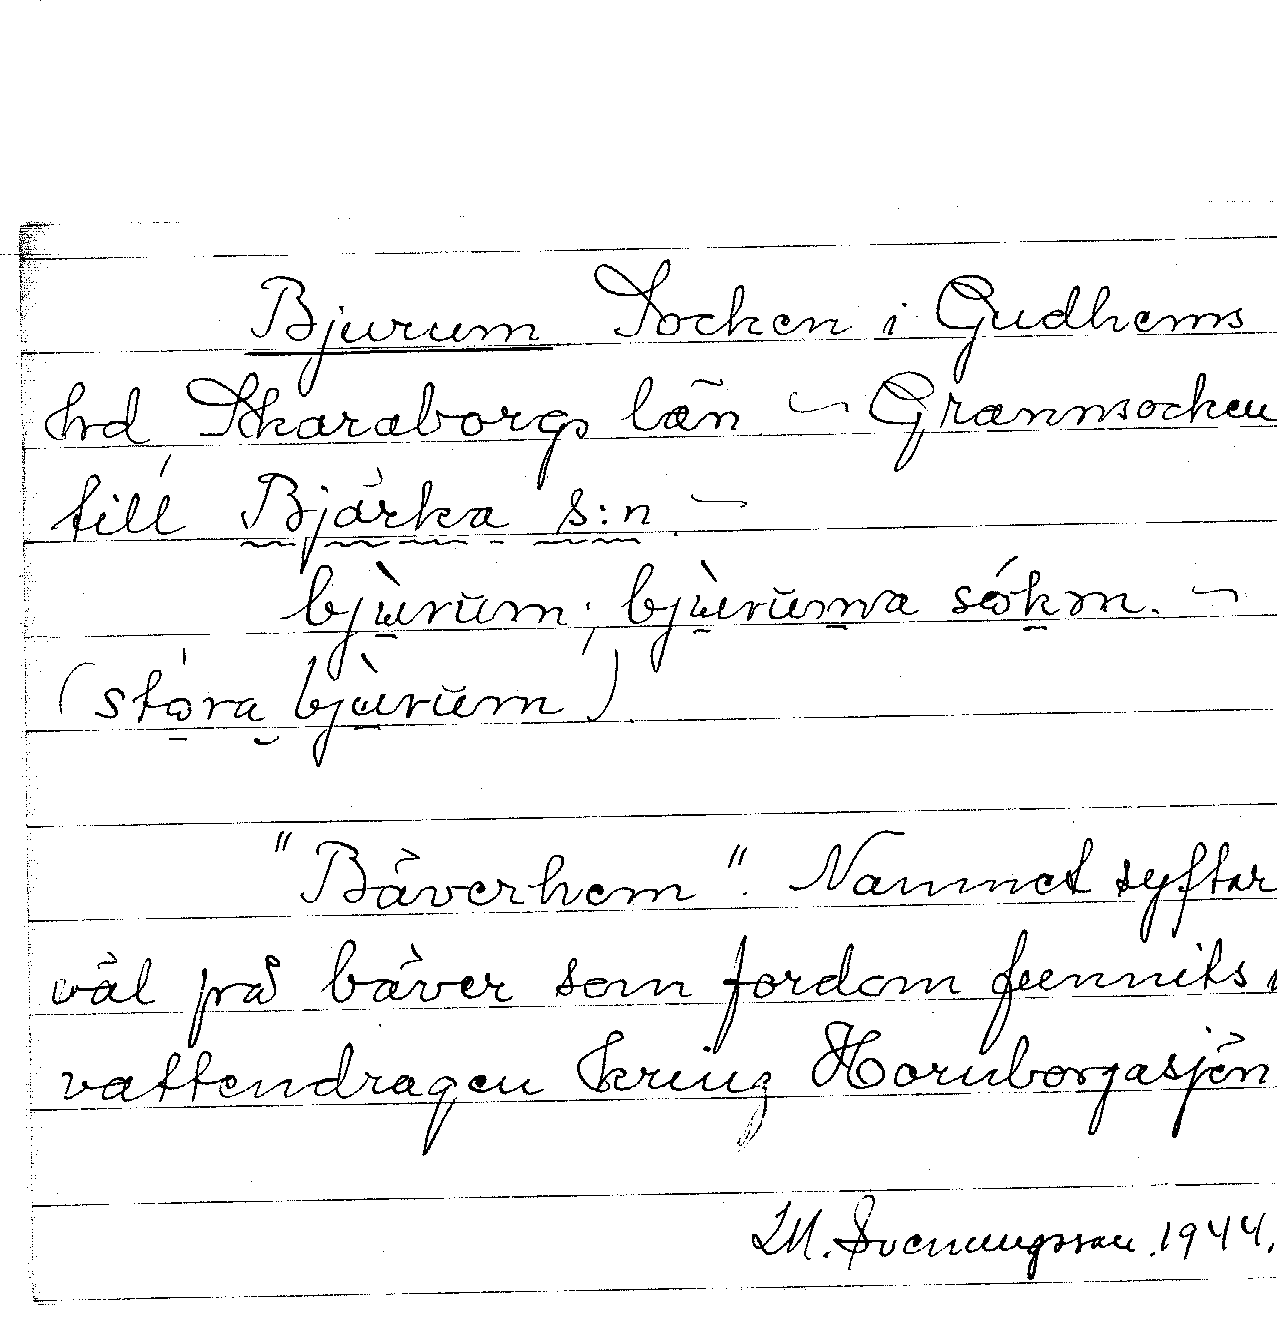 Bjurum Socken i Gudhems
hd Skaraborgs län ~ Grannsocken
till Bjärka s:n. ~
bjùrum; bjùruma sókm. ~
(stóra bjùrum).
"Bäverhem". Namnet syftar
väl på bäver som fordom funnits i
vattendragen kring Hornborgasjön
M. Svenungsson. 1944.